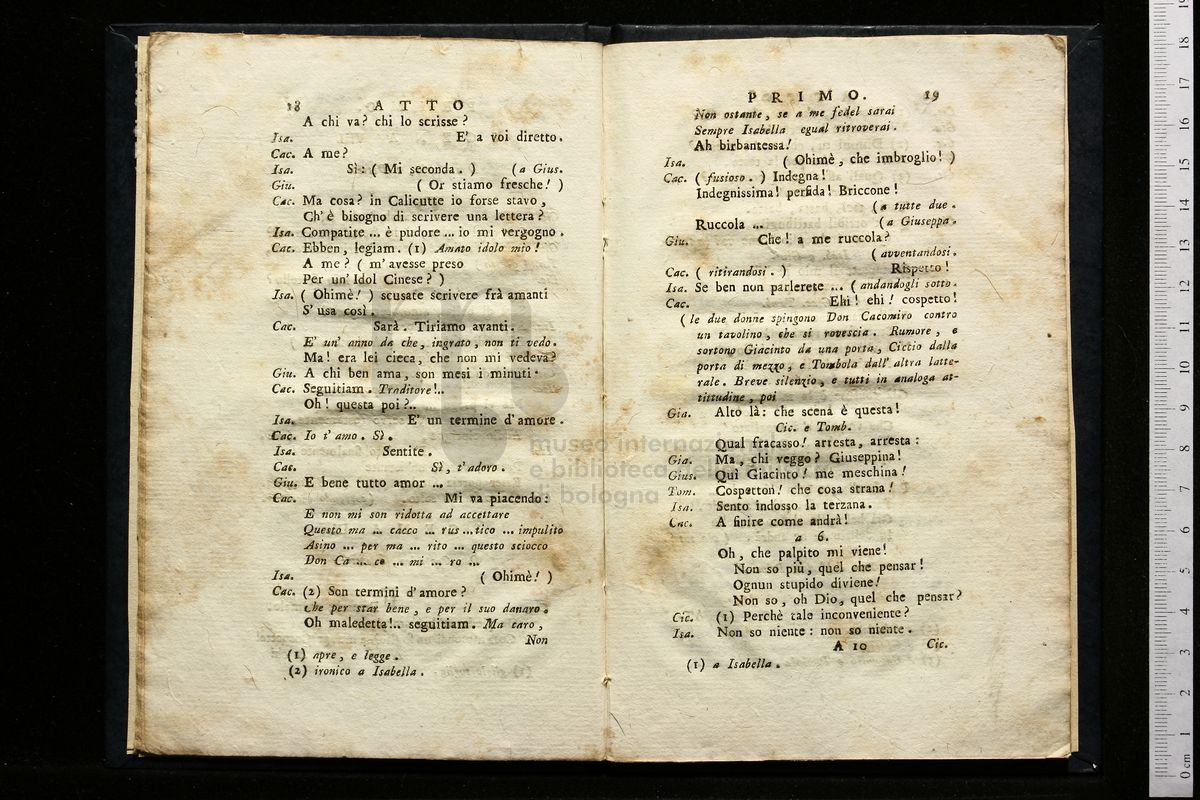 18 ATTO
A chi va? chi lo scrisse?
Isa. E' a voi diretto.
Cac. A me?
Isa. Sì: ( Mi seconda. ) (a Gius.
Giu. ( Or stiamo fresche! )
Cac. Ma cosa? in Calicutte io forse stavo,
Ch'è bisogno di scrivere una lettera?
Isa. Compatite ... è pudore ... io mi vergogno.
Cac. Ebben, legiam. (1) Amato idolo mio!
A me? ( m'avesse preso
Per un' Idol Cinese? )
Isa. ( Ohimè! ) scusate scrivere frà amanti
S' usa così.
Cac. Sarà. Tiriamo avanti.
E' un' anno da che, ingrato, non ti vedo.
Ma! era lei cieca, che non mi vedeva?
Giu. A chi ben ama, son mesi i minuti.
Cac. Seguitiam. Traditore!..
Oh! questa poi?..
Isa. E' un termine d'amore.
Cac. Io t'amo. Sì.
Isa. Sentite.
Cac. Sì, t'adoro.
Giu. E bene tutto amor ...
Cac. Mi va piacendo:
E non mi son ridotta ad accettare
Questo ma ... cacco ... rus ... tico ... impulito
Asino ... per ma ... rito ... questo sciocco
Don Ca ... co ... mi ... ro ...
Isa. ( Ohimè! )
Cac. (2) Son termini d'amore?
che per star bene, e per il suo danaro.
Oh maledetta!.. seguitiam. Ma caro,
Non
(1) apre, e legge.
(2) ironico a Isabella.
PRIMO. 19
Non ostante, se a me fedel sarai
Sempre Isabella egual ritroverai.
Ah birbantessa!
Isa. ( Ohimè, che imbroglio! )
Cac. ( fusioso. ) Indegna!
Indegnissima! perfida! Briccone!
(a tutte due.
Ruccola ... (a Giuseppa.
Giu. Che! a me ruccola?
(avventandosi.
Cac. ( ritirandosi. ) Rispetto!
Isa. Se ben non parlerete ... (andandogli sotto.
Cac. Ehi! ehi! cospetto!
(le due donne spingono Don Cacomiro contro
un tavolino, che si rovescia. Rumore, e
sortono Giacinto da una porta, Ciccio dalla
porta di mezzo, e Tombola dall' altra latte-
rale. Breve silenzio, e tutti in analoga at-
tittudine, poi
Gia. Alto là: che scena è questa!
Cic. e Tomb.
Qual fracasso! arresta, arresta:
Gia. Ma, chi veggo? Giuseppina!
Gius. Quì Giacinto! me meschina!
Tom. Cospetton! che cosa strana!
Isa. Sento indosso la terzana.
Cac. A finire come andrà!
a 6.
Oh, che palpito mi viene!
Non so più, quel che pensar!
Ognun stupido diviene!
Non so, oh Dio, quel che pensar?
Cic. (1) Perchè tale inconveniente?
Isa. Non so niente: non so niente.
A 10 Cic.
(1) a Isabella.
museo internaz
e biblioteca della
di bologna
0 cm 1 2 3 4 5 6 7 8 9 10 11 12 13 14 15 16 17 18 19